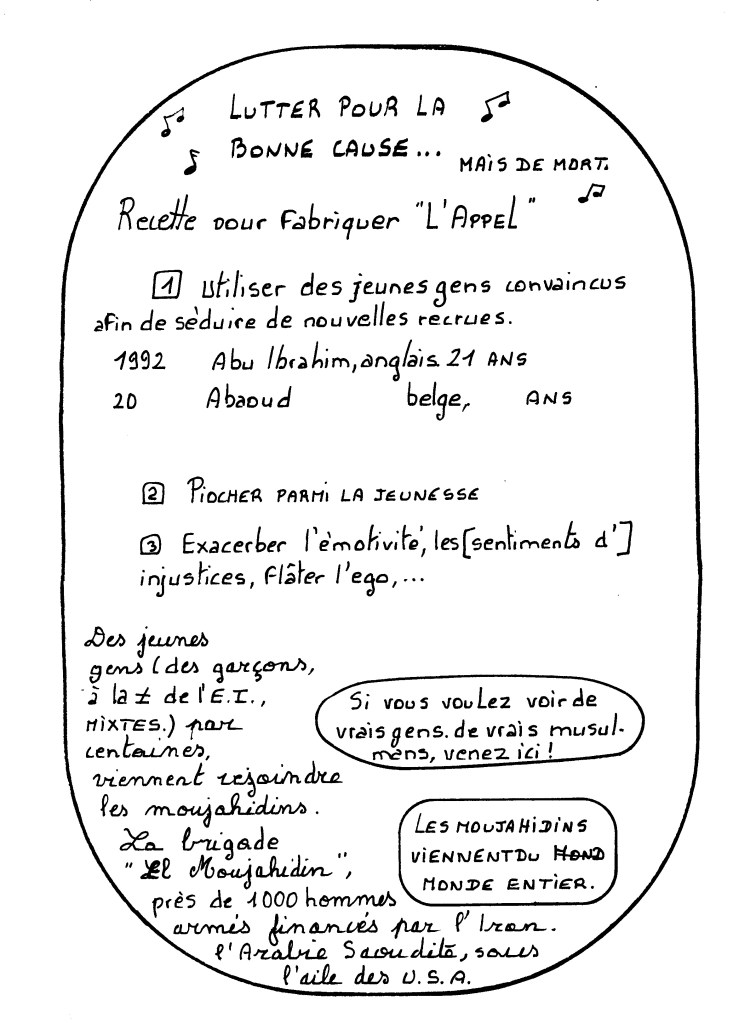 LUTTER POUR LA
BONNE CAUSE...
MAIS DE MORT.
Recette pour fabriquer "L'APPEL"
1 Utiliser des jeunes gens convaincus
afin de sèduire de nouvelles recrues.
1992 Abu Ibrahim, anglais. 21 ANS
20 Abaoud belge, ANS
2 PIOCHER PARMI LA JEUNESSE
3 Exacerber l'èmotivité, les [sentiments d']
injustices, flâter l'ego,...
Des jeunes
gens (des garçons,
à la ≠ de l'E.I.,
MIXTES.) par
centaines,
viennent rejoindre
les moujahidins.
La brigade
"El Moujahidin",
près de 1000 hommes
armés financés par l'Iran.
l'Arabie Saoudite, sous
l'aile des U.S.A.
Si vous voulez voir de
vrais gens. de vrais musul-
mans, venez ici !
LES MOUJAHIDINS
VIENNENT DU MOND
MONDE ENTIER.